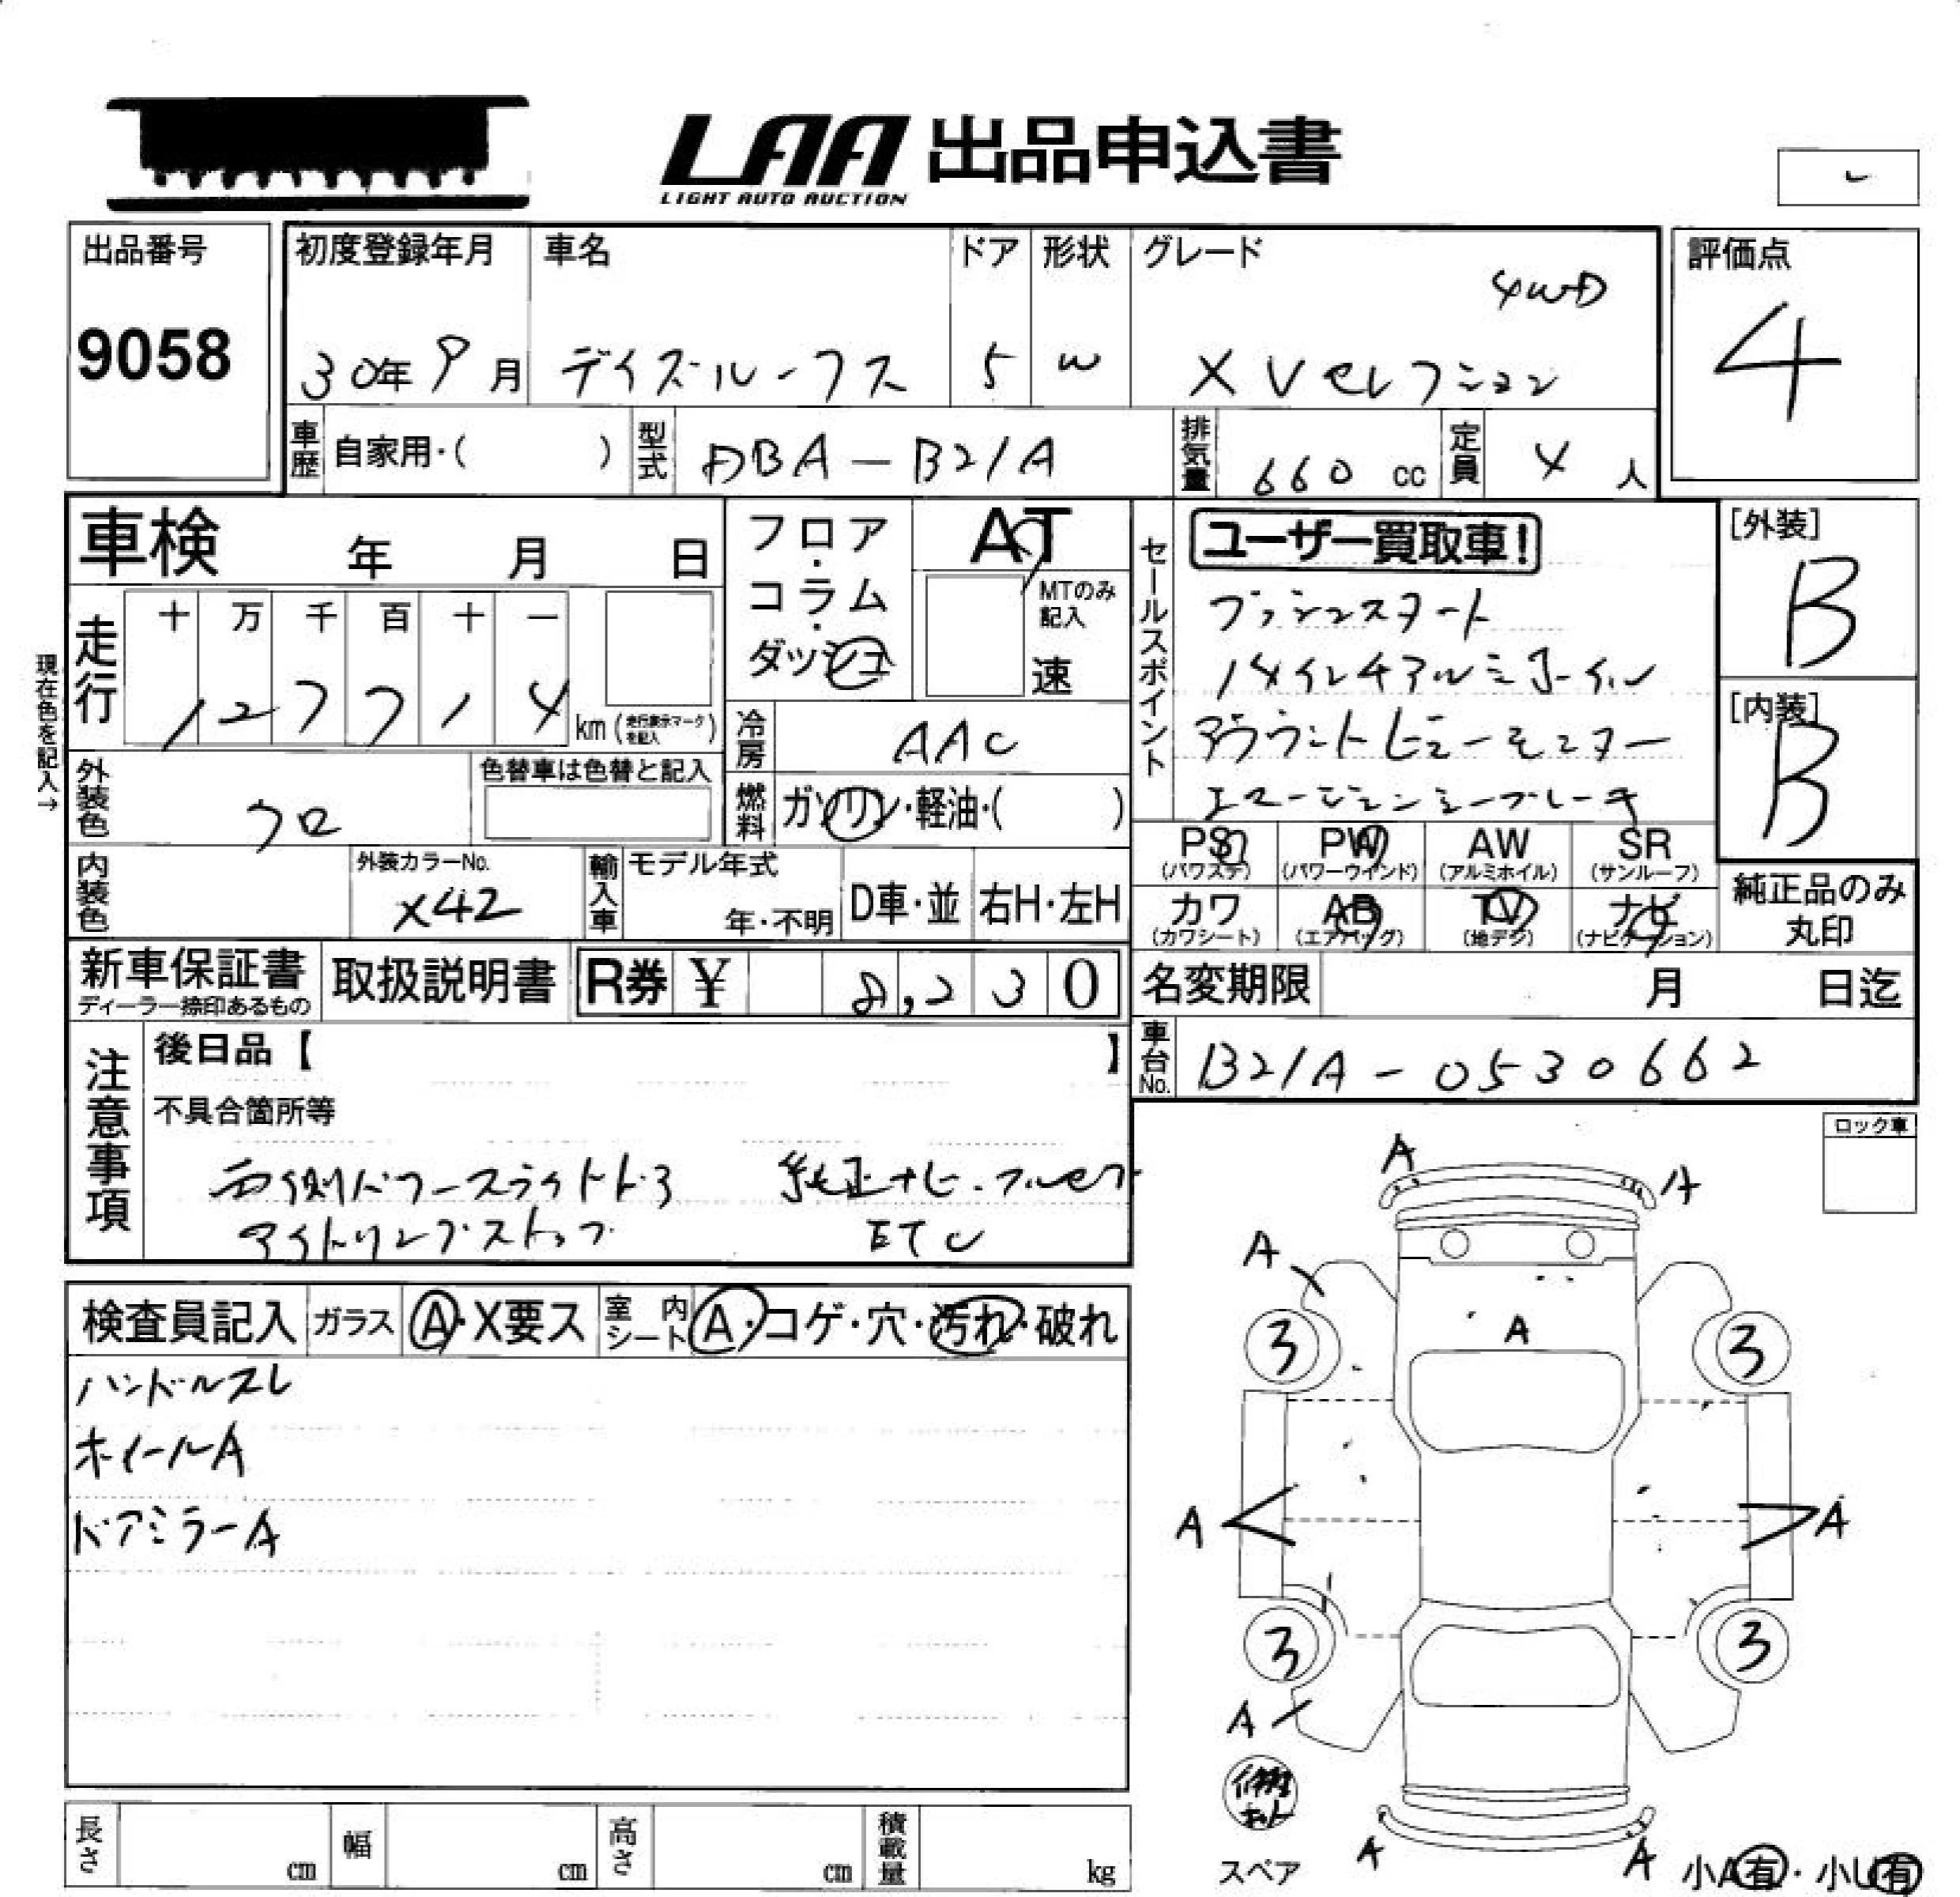 LAA 出品申込書
LIGHT AUTO AUCTION
出品番号
9058
初度登録年月
30年 9月
車名
デイズルークス
ドア
5
形状
W
グレード
4WD
X Vセレクション
評価点
4
車歴 自家用・( )
型式 DBA-B21A
排気量 660 cc
定員 4 人
車検 年 月 日
現在色を記入→
走行 十 万 千 百 十 一
127714 km (走行表示マークを記入)
フロア・コラム・ダッシュ
AT
MTのみ記入
速
冷房 AAC
燃料 ガソリン・軽油・( )
外装色 クロ
色替車は色替と記入
内装色
外装カラーNo.
X42
輸入車 モデル年式
年・不明
D車・並
右H・左H
セールスポイント
ユーザー買取車!
プッシュスタート
14インチアルミホイール
アラウンドビューモニター
エマージェンシーブレーキ
[外装]
B
[内装]
B
PS (パワステ)
PW (パワーウインド)
AW (アルミホイル)
SR (サンルーフ)
カワ (カワシート)
AB (エアバッグ)
TV (地デジ)
ナビ (ナビゲーション)
純正品のみ丸印
新車保証書
ディーラー捺印あるもの
取扱説明書
R券 ¥ 8,230
名変期限 月 日迄
車台No. B21A-0530662
注意事項
後日品【 】
不具合箇所等
両側パワースライドドア 純正ナビ・フルセグ
アイドリングストップ ETC
ロック車
検査員記入
ガラス A・X要ス
室内シート A・コゲ・穴・汚れ・破れ
ハンドルスレ
ホイールA
ドアミラーA
A
A
A
3
A
3
A
A
3
3
A
修理キット
スペア
A
A
小A有・小U有
長さ cm
幅 cm
高さ cm
積載量 kg